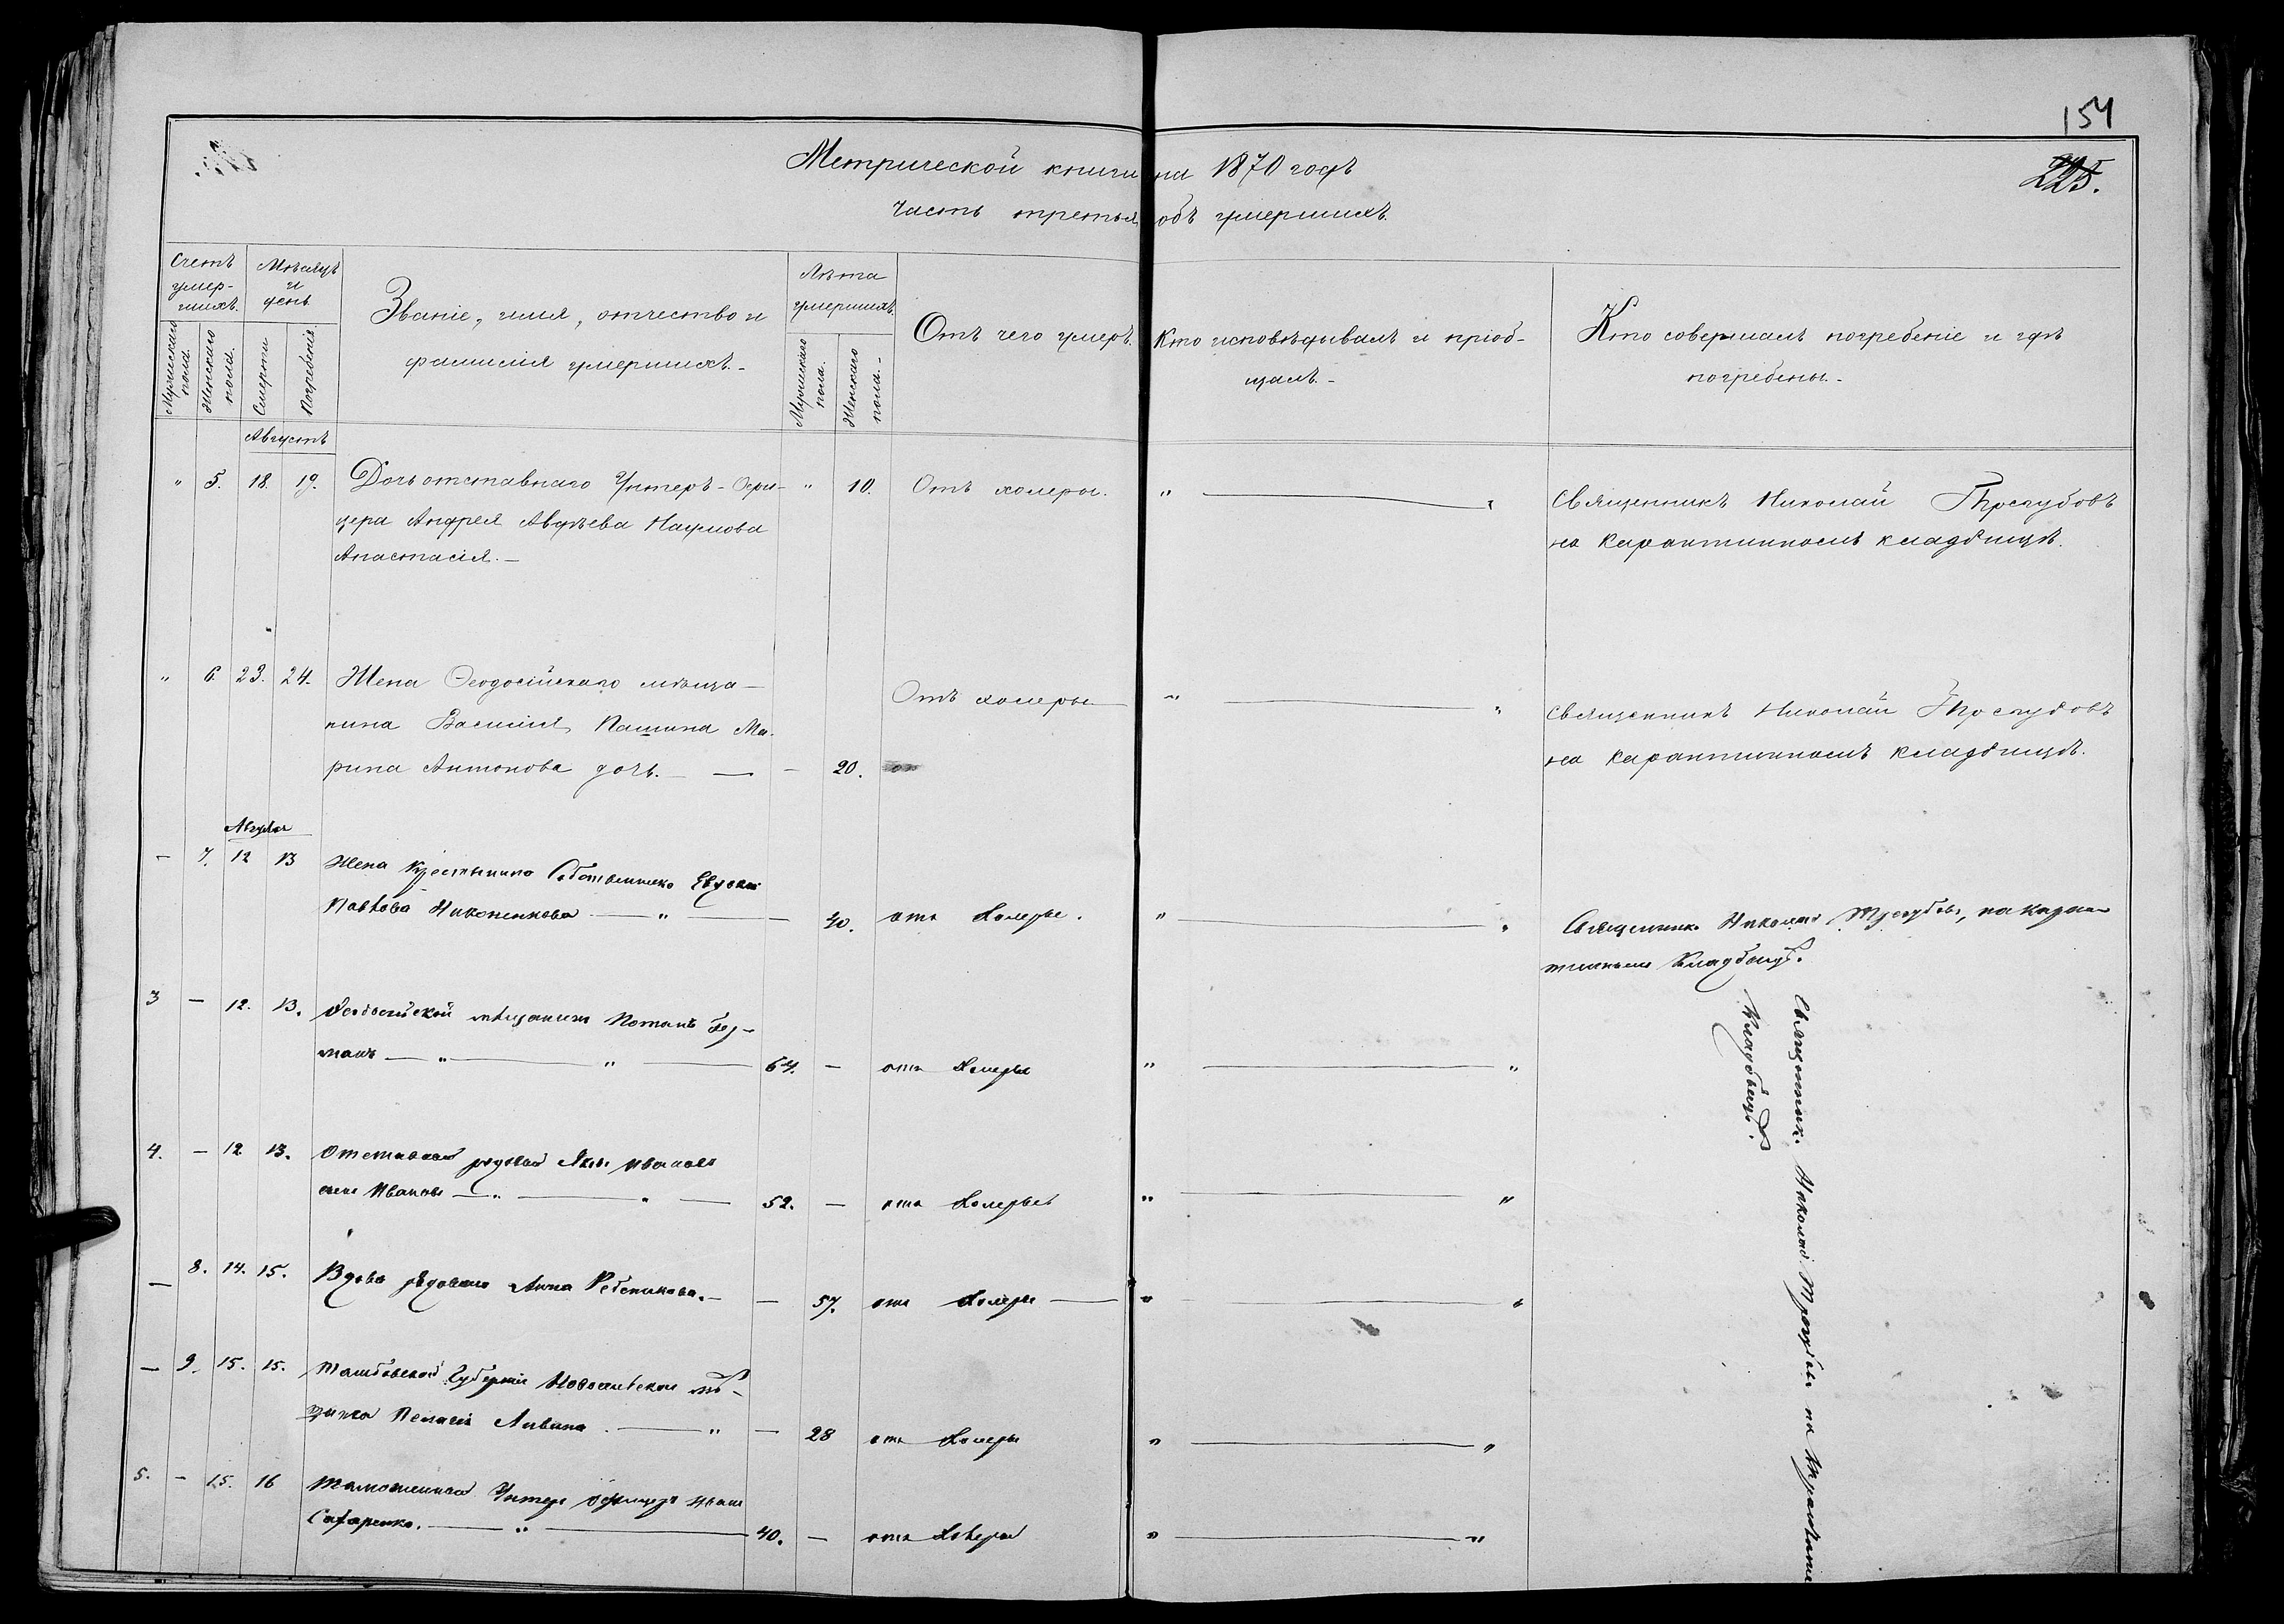 154
225.
Метрической книги на 1870 годъ
Часть третья объ умершихъ.
Счетъ умер-
шихъ.
Мужескаго пола.
Женскаго пола.
Мѣсяцъ и день
Смерти
Погребенія
Званіе, имя, отчество и
фамилія умершихъ.-
Лѣта умершихъ.
Мужескаго пола.
Женскаго пола.-
Отъ чего умеръ.
Кто исповѣдывалъ и пріоб-
щалъ.-
Кто совершалъ погребеніе и гдѣ
погребены.-
Августъ
" 5. 18. 19. Дочь отставнаго Унтеръ-Офи- " 10. Отъ холеры. " — " Священникъ Николай Трегубовъ
цера Андрея Авдѣева Наумова на Карантинномъ кладбищѣ.
Анастасія.—
" 6. 23. 24. Жена Ѳеодосійскаго мѣща- Отъ холеры " — " Священникъ Николай Трегубовъ
нина Василія Пашина Ма- на Карантинномъ кладбищѣ.
рина Антонова дочь. — — 20.
Августа
— 7. 12 13 Жена крестьянина Собственника
Павлова Никоненкова — " — 40. отъ Холеры. " — " Священникъ Николай Трегубовъ, на Каран
тинномъ Кладбищѣ.
3 — 12. 13. Ѳеодосійской мѣщанинъ Потапъ
— " — " — 64. — отъ Холеры " — "
4. — 12 13. Отставной рядовой Яковъ Ивановъ
сынъ Ивановъ — " — " — 52. — отъ Холеры " — "
— 8. 14. 15. Вдова рядоваго Анна — 57. отъ Холеры — " — "
— 9. 15. 15. Тамбовской Губерніи мѣ-
щанка Пелагея — " — 28 отъ Холеры " — "
5. — 15. 16 Таможенной Унтеръ Офицеръ Иванъ
— " — 40. — отъ Холеры " — "
Священникъ Николай Трегубовъ на Карантинномъ
Кладбищѣ.